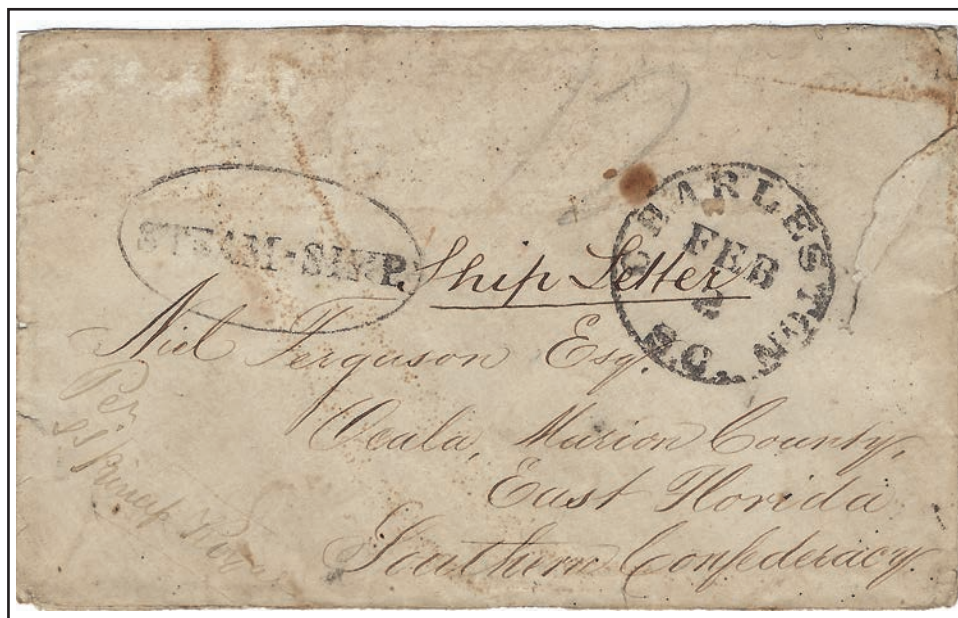 12
STEAM-SHIP.
CHARLESTON
FEB
2
S.C.
Ship Letter
Niel Ferguson Esq.
Ocala, Marion County,
East Florida
Southern Confederacy.
Per
SS